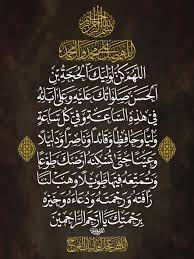 بسم الله الرحمن الرحيم
اللهم صل على محمد وآل محمد
اللهم كن لوليك الحجة بن
الحسن صلواتك عليه وعلى آبائه
في هذه الساعة وفي كل ساعة
وليا وحافظا وقائدا وناصرا ودليلا
وعينا حتى تسكنه أرضك طوعا
وتمتعه فيها طويلا وهب لنا
رأفته ورحمته ودعاءه وخيره
برحمتك يا أرحم الراحمين
اللهم عجل لوليك الفرج